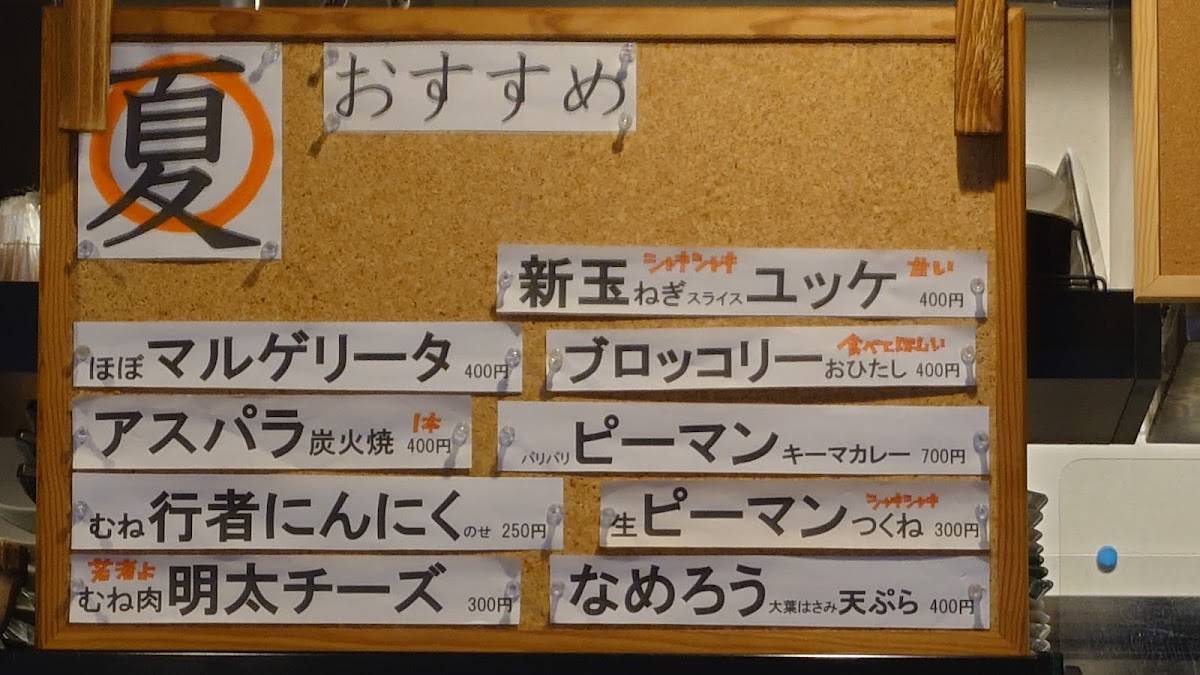 夏
おすすめ
新玉ねぎスライスユッケ 400円
シャキシャキ
甘い
ほぼマルゲリータ 400円
ブロッコリーおひたし 400円
食べてほしい
アスパラ炭火焼 400円
1本
パリパリピーマンキーマカレー 700円
むね行者にんにくのせ 250円
生ピーマンつくね 300円
シャキシャキ
若者よ
むね肉明太チーズ 300円
なめろう大葉はさみ天ぷら 400円